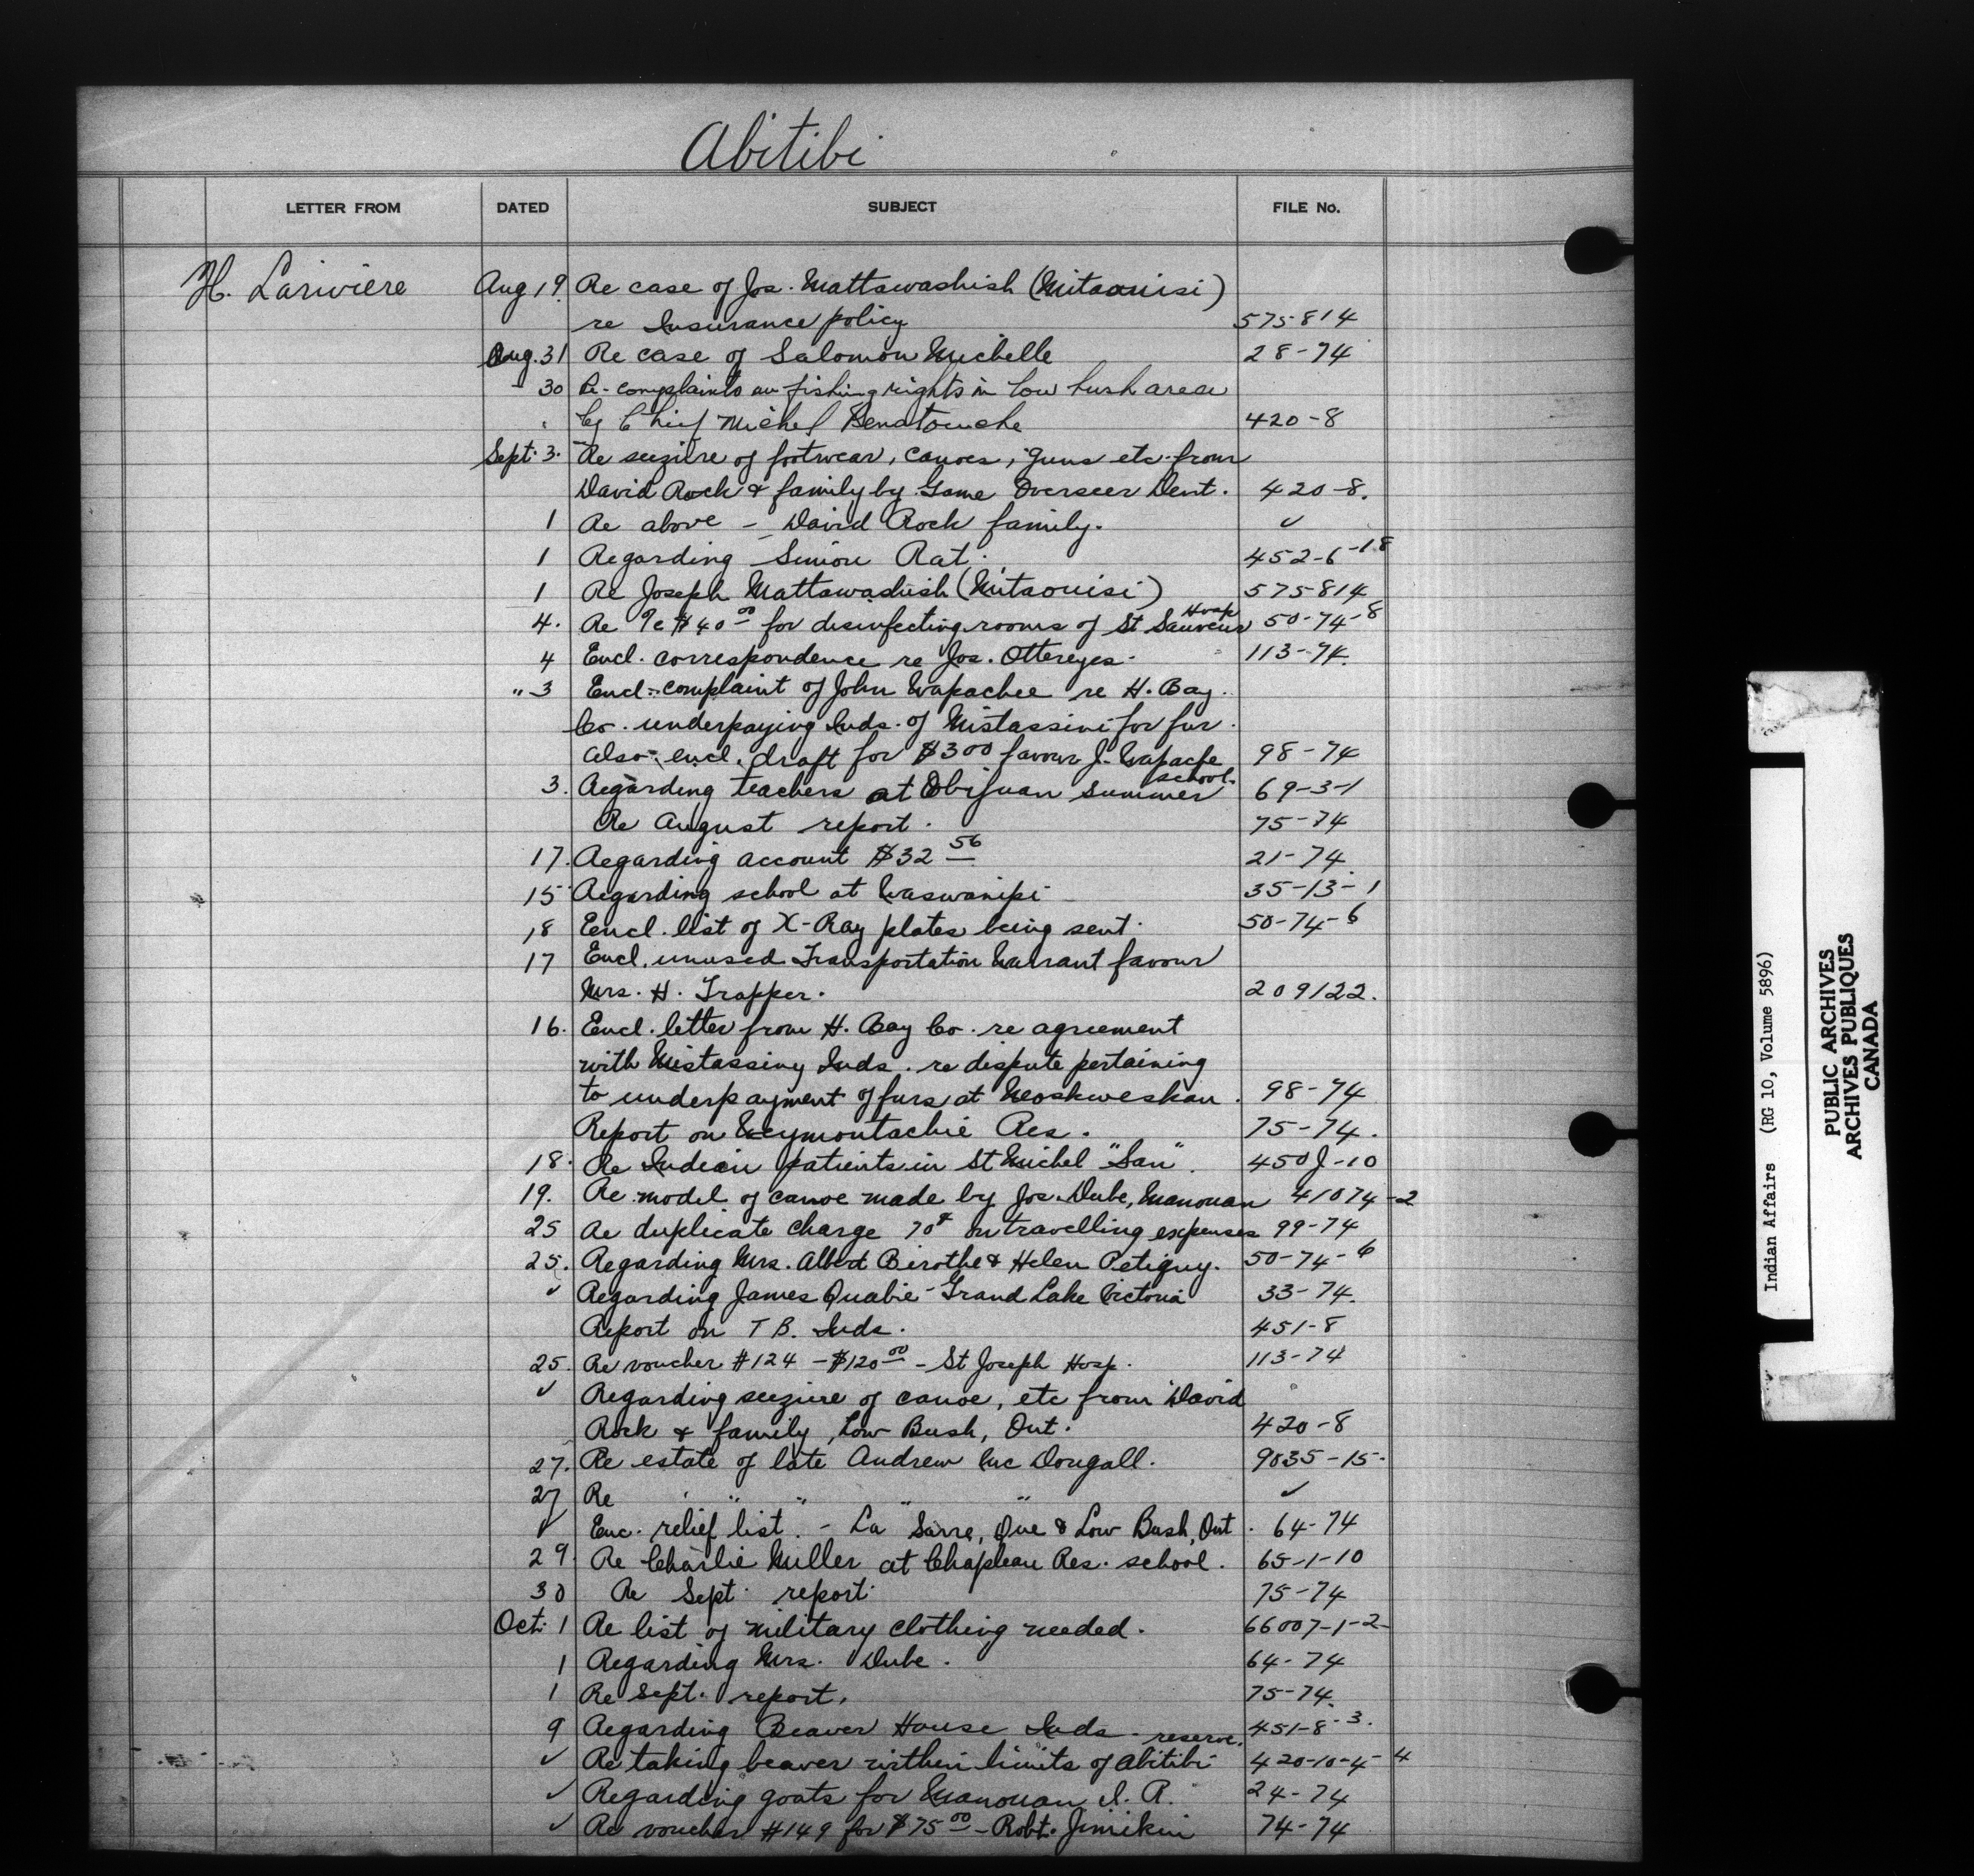 Abitibi
LETTER FROM DATED SUBJECT FILE No.
H. Lariviere Aug 19. Re case of Jos. Mattawashish (Mitaouisi)
re Insurance policy 575814
Aug. 31 Re case of Salomon Michelle 28-74
" 30 Re-complaints on fishing rights in Low bush area
by Chief Michel Benatouche 420-8
Sept. 3. Re seizure of footwear, canoes, guns etc. from
David Rock & family by Game Overseer Dent. 420-8.
1 Re above - David Rock family. ✓
1 Regarding Simon Rat. 452-6-18
1 Re Joseph Mattawashish (Mitaouisi) 575814
4. Re %c $40 00 for disinfecting rooms of St Sauveur Hosp 50-74-8
4 Encl. correspondence re Jos. Ottereyes. 113-74.
" 3 Encl. complaint of John Wapachee re H. Bay.
Co. underpaying Inds. of Mistassini for fur.
also encl. draft for $3 00 favour J. Wapache 98-74
3. Regarding teachers at Obijuan Summer school. 69-3-1
Re August report. 75-74
17. Regarding account $32 56 21-74.
15 Regarding school at Waswanipi 35-13-1
18 Encl. list of X-Ray plates being sent. 50-74-6
17 Encl. unused Transportation Warrant favour
Mrs. H. Trapper. 209122.
16. Encl. letter from H. Bay Co. re agreement
with Mistassiny Inds. re dispute pertaining
to underpayment of furs at Neoskweskau. 98-74
Report on Weymontachie Res. 75-74.
18. Re Indian patients in St Michel "San". 450J-10
19. Re model of canoe made by Jos. Dube, Manouan 41074-2
25 Re duplicate charge 70¢ on travelling expenses 99-74
25. Regarding Mrs. Albert Birothe & Helen Petiguy. 50-74-6
✓ Regarding James Quabie - Grand Lake Victoria 33-74.
Report on T B. Inds. 451-8
25. Re voucher #124 - $120 00 - St Joseph Hosp. 113-74
✓ Regarding seizure of canoe, etc from David
Rock & family, Low Bush, Ont. 420-8
27. Re estate of late Andrew Mc Dougall. 9035-15.
27 Re " " " " ✓
✓ Enc. relief list. - La Sarre, Que & Low Bush, Ont. 64-74
29. Re Charlie Miller at Chapleau Res. school. 65-1-10
30 Re Sept. report. 75-74
Oct. 1 Re list of military clothing needed. 66007-1-2
1 Regarding Mrs. Dube. 64-74
1 Re Sept. report. 75-74.
9 Regarding Beaver House Inds. 451-8-3.
✓ Re taking beaver within limits of Abitibi reserve. 420-10-4-4
✓ Regarding goats for Manouan I. R. 24-74
✓ Re voucher #149 for $75 00 - Robt. Jimikin 74-74
Indian Affairs (RG 10, Volume 5896)
PUBLIC ARCHIVES
ARCHIVES PUBLIQUES
CANADA